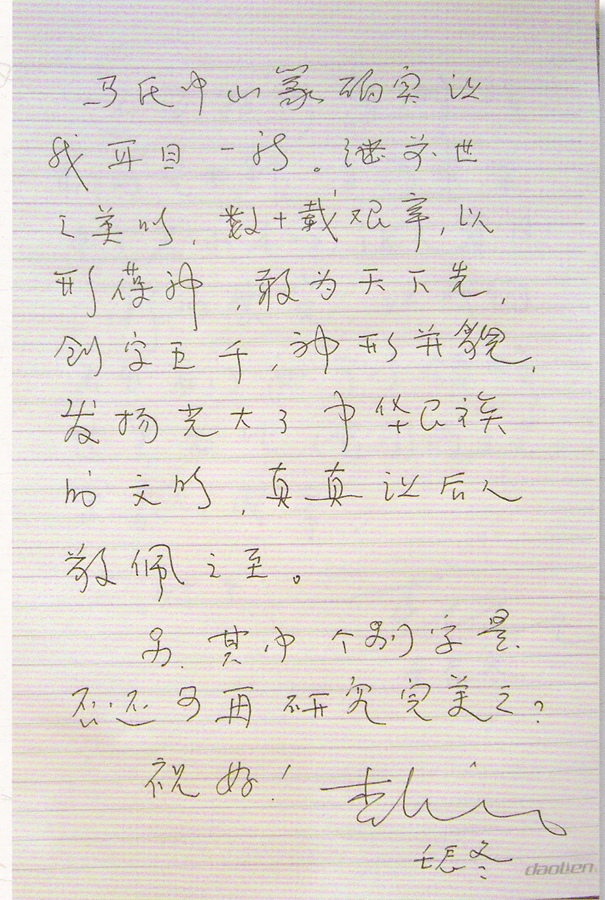 马氏中山篆确实让
我耳目一新。继前世
之英明,数十载艰辛,以
形葆神,敢为天下先,
创字五千,神形并貌,
发扬光大了中华民族
的文明,真真让后人
敬佩之至。
另,其中个别字是
否还可再研究完美之?
祝好!
壬辰冬
daolien